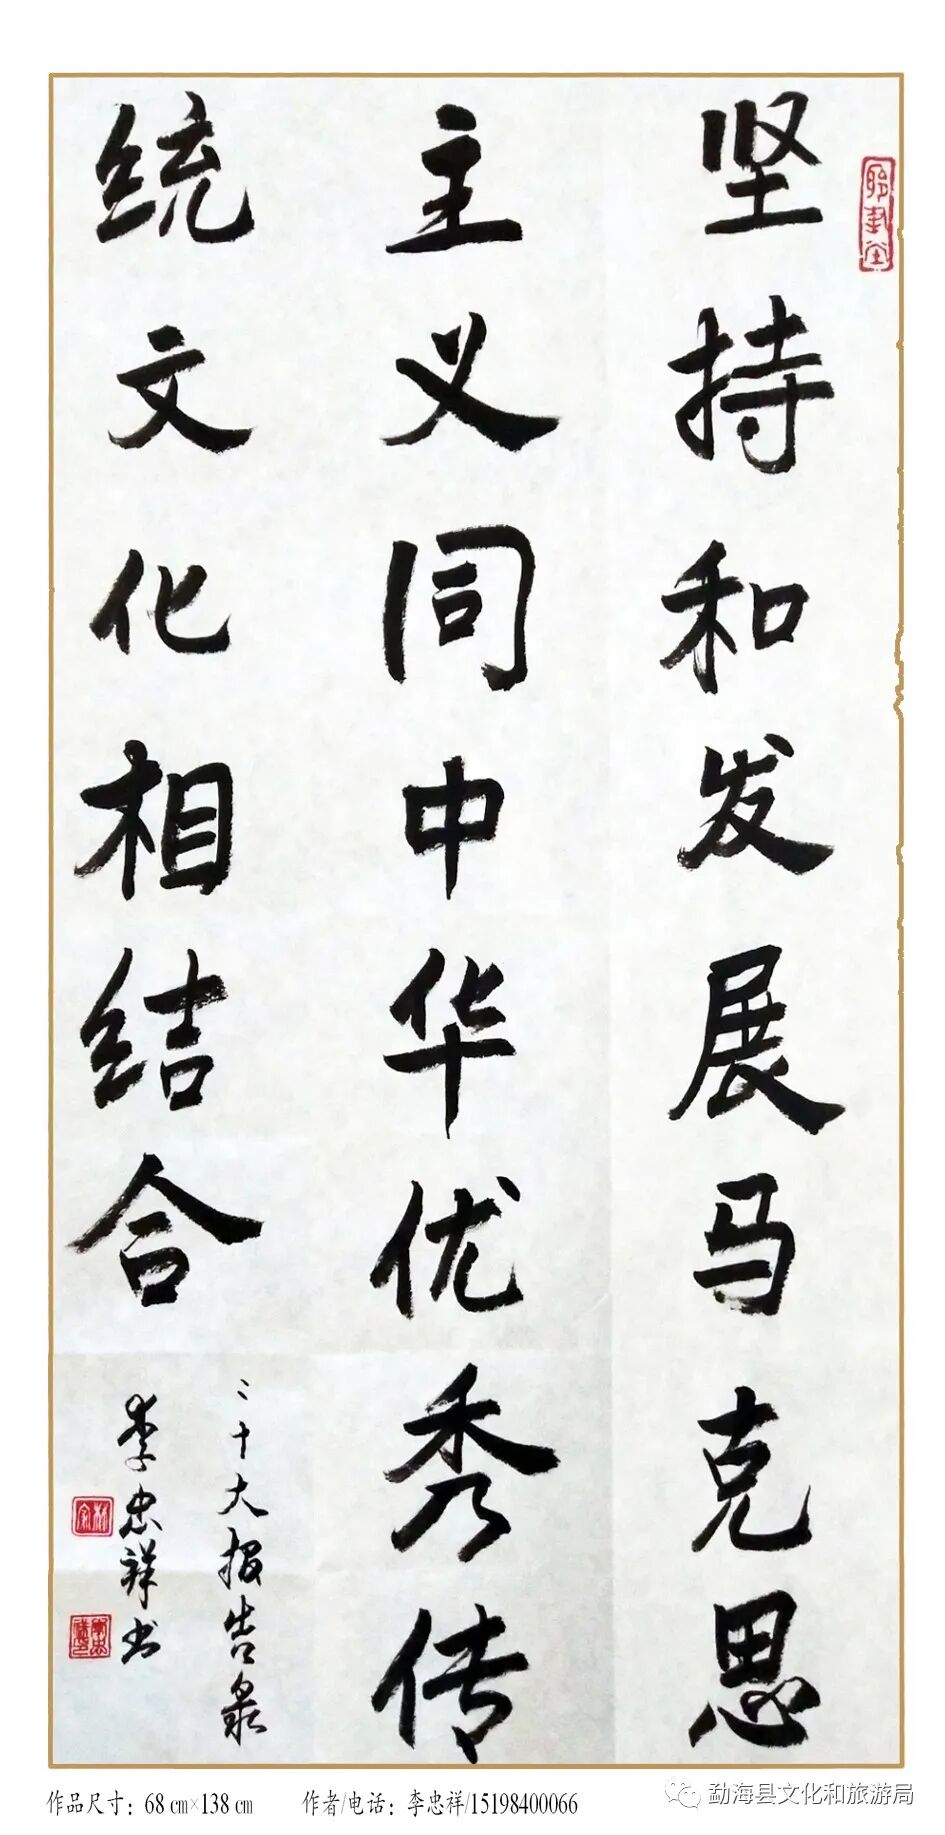 坚持和发展马克思
主义同中华优秀传
统文化相结合
二十大报告最
李忠祥书
作品尺寸：68㎝×138㎝
作者/电话：李忠祥/15198400066
勐海县文化和旅游局